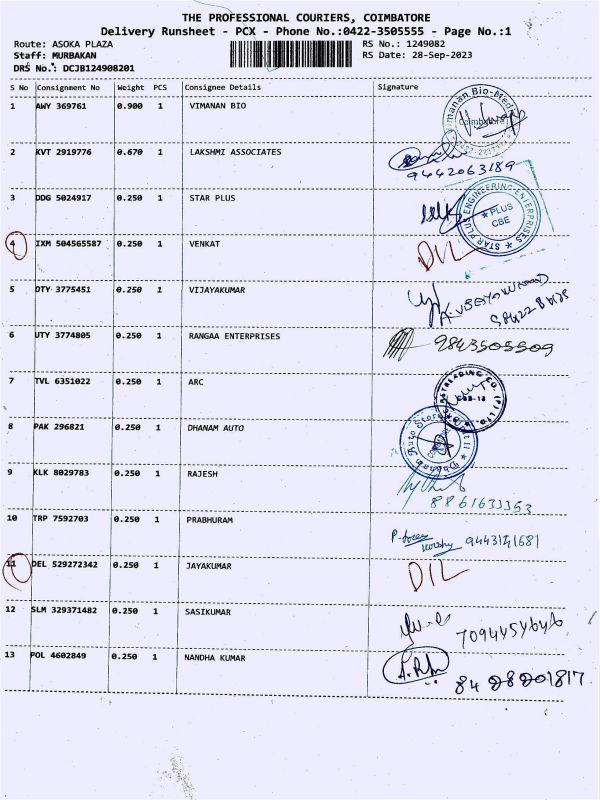 THE PROFESSIONAL COURIERS, COIMBATORE
Delivery Runsheet - PCX - Phone No.:0422-3505555 - Page No.:1
Route: ASOKA PLAZA RS No.: 1249082
Staff: MURBAKAN RS Date: 28-Sep-2023
DRS No.: DCJB124908201
S No Consignment No Weight PCS Consignee Details Signature
1 AWY 369761 0.900 1 VIMANAN BIO
2 KVT 2919776 0.670 1 LAKSHMI ASSOCIATES
9442063189
3 DDG 5024917 0.250 1 STAR PLUS
STAR PLUS ENGINEERING ENTERPRISES
★ PLUS
CBE
4 IXM 504565587 0.250 1 VENKAT DIL
5 DTY 3775451 0.250 1 VIJAYAKUMAR
6 UTY 3774805 0.250 1 RANGAA ENTERPRISES 9843505509
7 TVL 6351022 0.250 1 ARC
8 PAK 296821 0.250 1 DHANAM AUTO
9 KLK 8029783 0.250 1 RAJESH
8861633353
10 TRP 7592703 0.250 1 PRABHURAM
11 DEL 529272342 0.250 1 JAYAKUMAR DIL
12 SLM 329371482 0.250 1 SASIKUMAR
7094454646
13 POL 4602849 0.250 1 NANDHA KUMAR